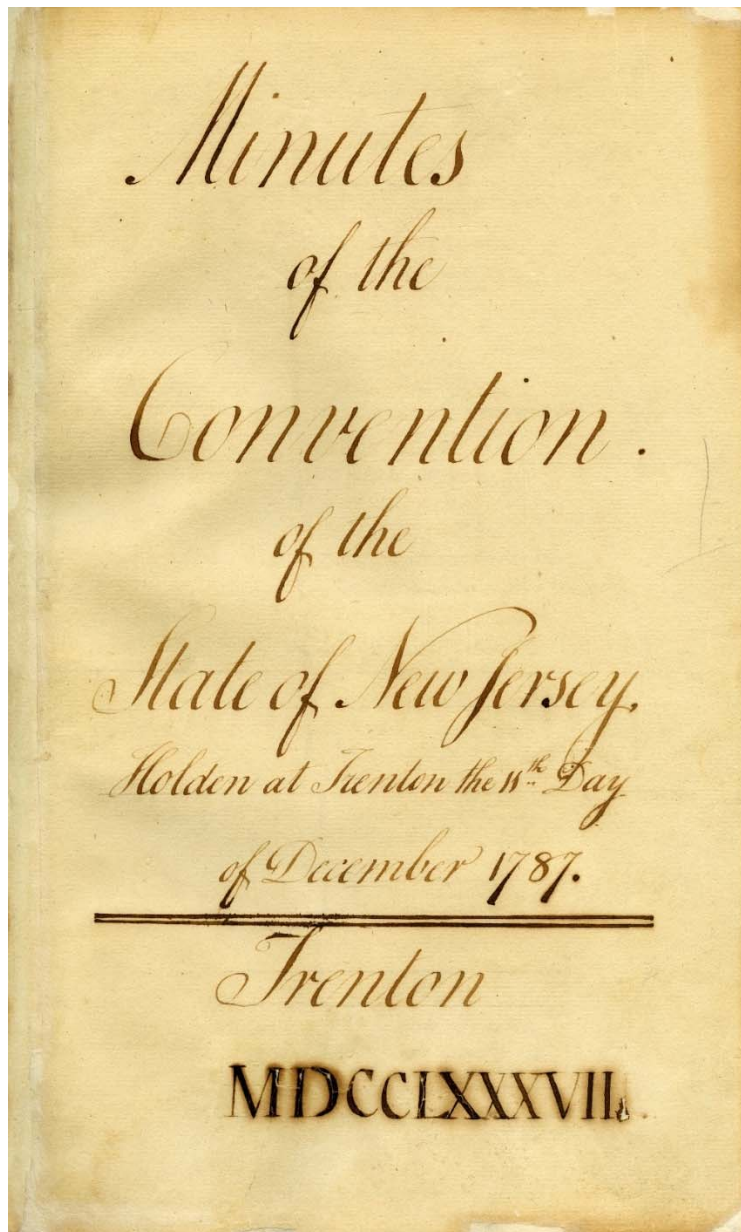 Minutes
of the
Convention.
of the
State of New Jersey.
Holden at Trenton the 11th Day
of December 1787.
Trenton
MDCCLXXXVII.